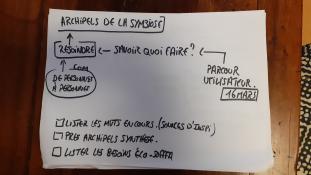 ARCHIPELS DE LA SYMBIOSE
REJOINDRE ← SAVOIR QUOI FAIRE?
COM
DE PERSONNES
À PERSONNES
PARCOUR
UTILISATEUR.
16 MARS
LISTER LES MUTS EN COURS. (SOURCES D'INSPI)
PRES ARCHIPELS SYNTHÈSE.
LISTER LES BESOINS ÉCO-